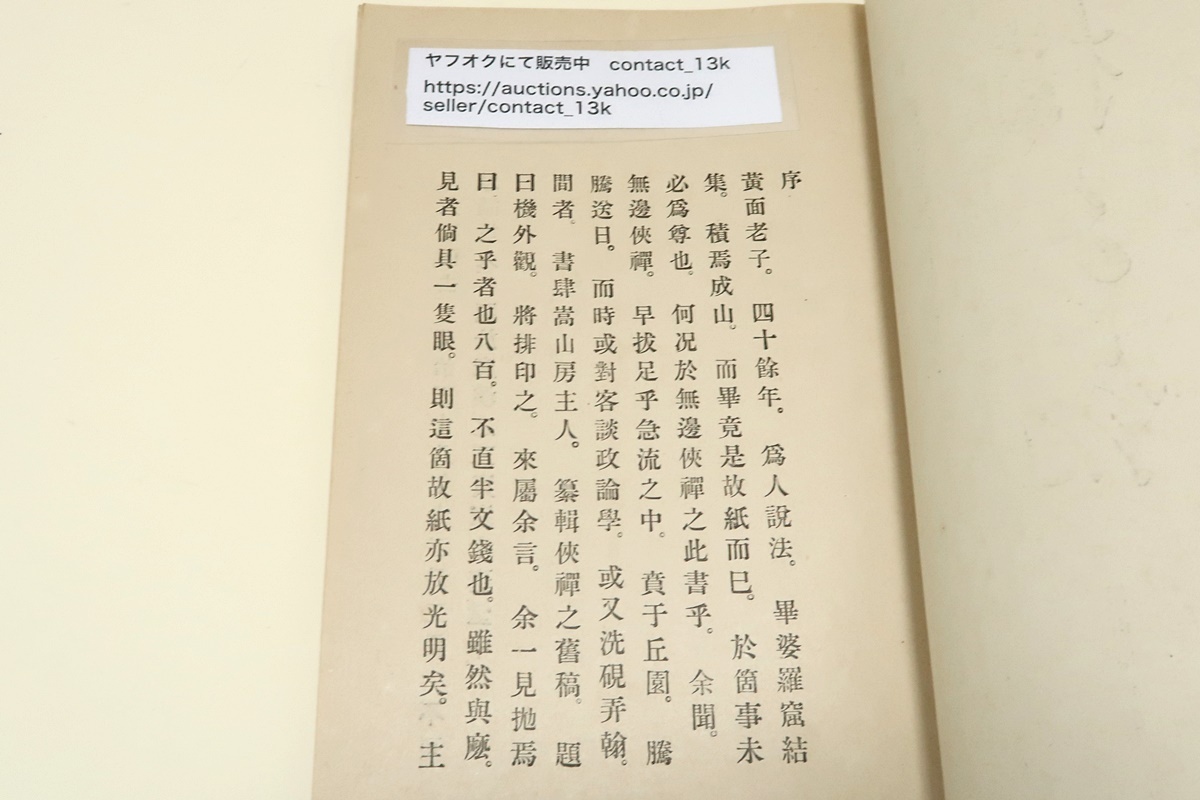 ヤフオクにて販売中 contact_13k
https://auctions.yahoo.co.jp/
seller/contact_13k
序
黃面老子。四十餘年。爲人說法。畢婆羅窟結
集。積焉成山。而畢竟是故紙而已。於箇事未
必爲尊也。何况於無邊俠禪之此書乎。余聞。
無邊俠禪。早拔足乎急流之中。賁于丘園。騰
騰送日。而時或對客談政論學。或又洗硯弄翰。
間者。書肆嵩山房主人。纂輯俠禪之舊稿。題
曰機外觀。將排印之。來屬余言。余一見拋焉
曰。之乎者也八百。不直半文錢也。雖然與麽。
見者倘具一隻眼。則這箇故紙亦放光明矣。主